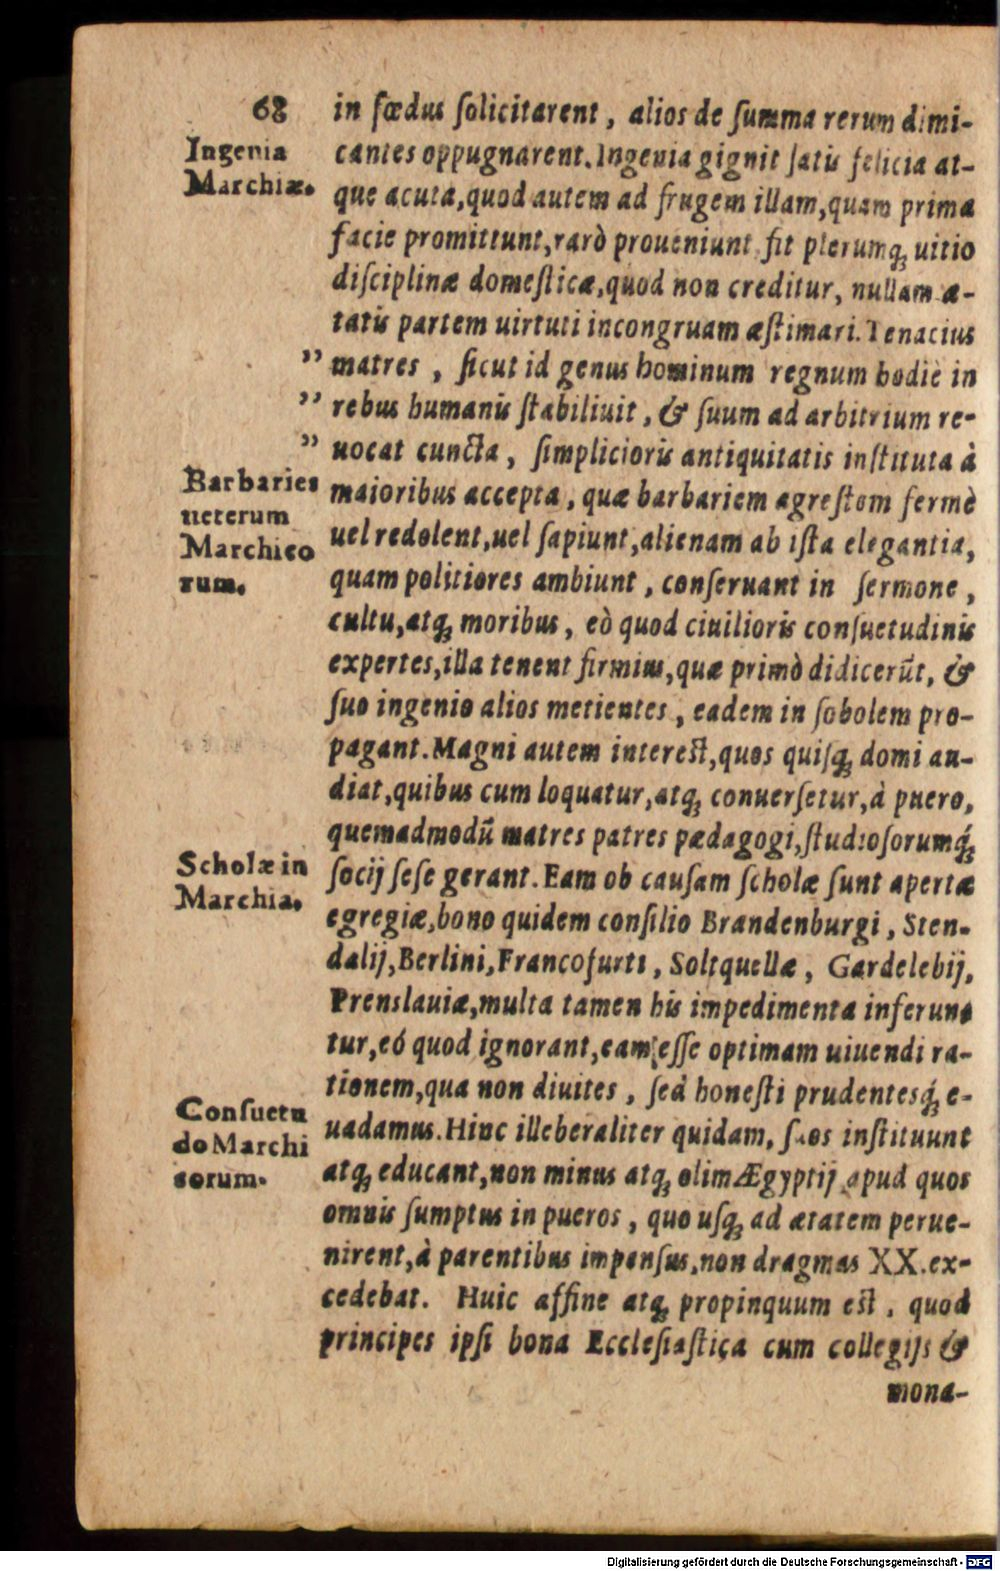 68
in fœdus ſolicitarent, alios de ſumma rerum dimi-
cantes oppugnarent. Ingenia gignit ſatis felicia at-
que acuta, quod autem ad frugem illam, quam prima
facie promittunt, rarò proueniunt fit plerumq́; uitio
diſciplinæ domeſticæ, quod non creditur, nullam æ-
tatis partem uirtuti incongruam æſtimari. Tenacius
" matres, ſicut id genus hominum regnum hodiè in
" rebus humanis ſtabiliuit, & ſuum ad arbitrium re-
" uocat cuncta, ſimplicioris antiquitatis inſtituta à
maioribus accepta, quæ barbariem agreſtem fermè
uel redolent, uel ſapiunt, alienam ab iſta elegantia,
quam politiores ambiunt, conſeruant in ſermone,
cultu, atq; moribus, eò quod ciuilioris conſuetudinis
expertes, illa tenent firmius, quæ primò didicerūt, &
ſuo ingenio alios metientes, eadem in ſobolem pro-
pagant. Magni autem intereſt, quos quiſq; domi au-
diat, quibus cum loquatur, atq; conuerſetur, à puero,
quemadmodū matres patres pædagogi, ſtudioſorumq́;
ſocij ſeſe gerant. Eam ob cauſam ſcholæ ſunt apertæ
egregiæ, bono quidem conſilio Brandenburgi, Sten-
dalij, Berlini, Francofurti, Soltquellæ, Gardelebij,
Prenslauiæ, multa tamen his impedimenta inferun-
tur, eó quod ignorant, eam eſſe optimam uiuendi ra-
tionem, qua non diuites, ſed honeſti prudentesq́; e-
uadamus. Hinc illeberaliter quidam, ſuos inſtituunt
atq; educant, non minus atq; olim Ægyptij apud quos
omnis ſumptus in pueros, quo uſq; ad ætatem perue-
nirent, à parentibus impenſus, non dragmas XX. ex-
cedebat. Huic affine atq; propinquum eſt, quod
principes ipſi bona Eccleſiaſtica cum collegijs &
mona-
Ingenia
Marchiæ.
Barbaries
ueterum
Marchico
rum.
Scholæ in
Marchia.
Conſuetu
do Marchi
corum.
Digitalisierung gefördert durch die Deutsche Forschungsgemeinschaft - DFG